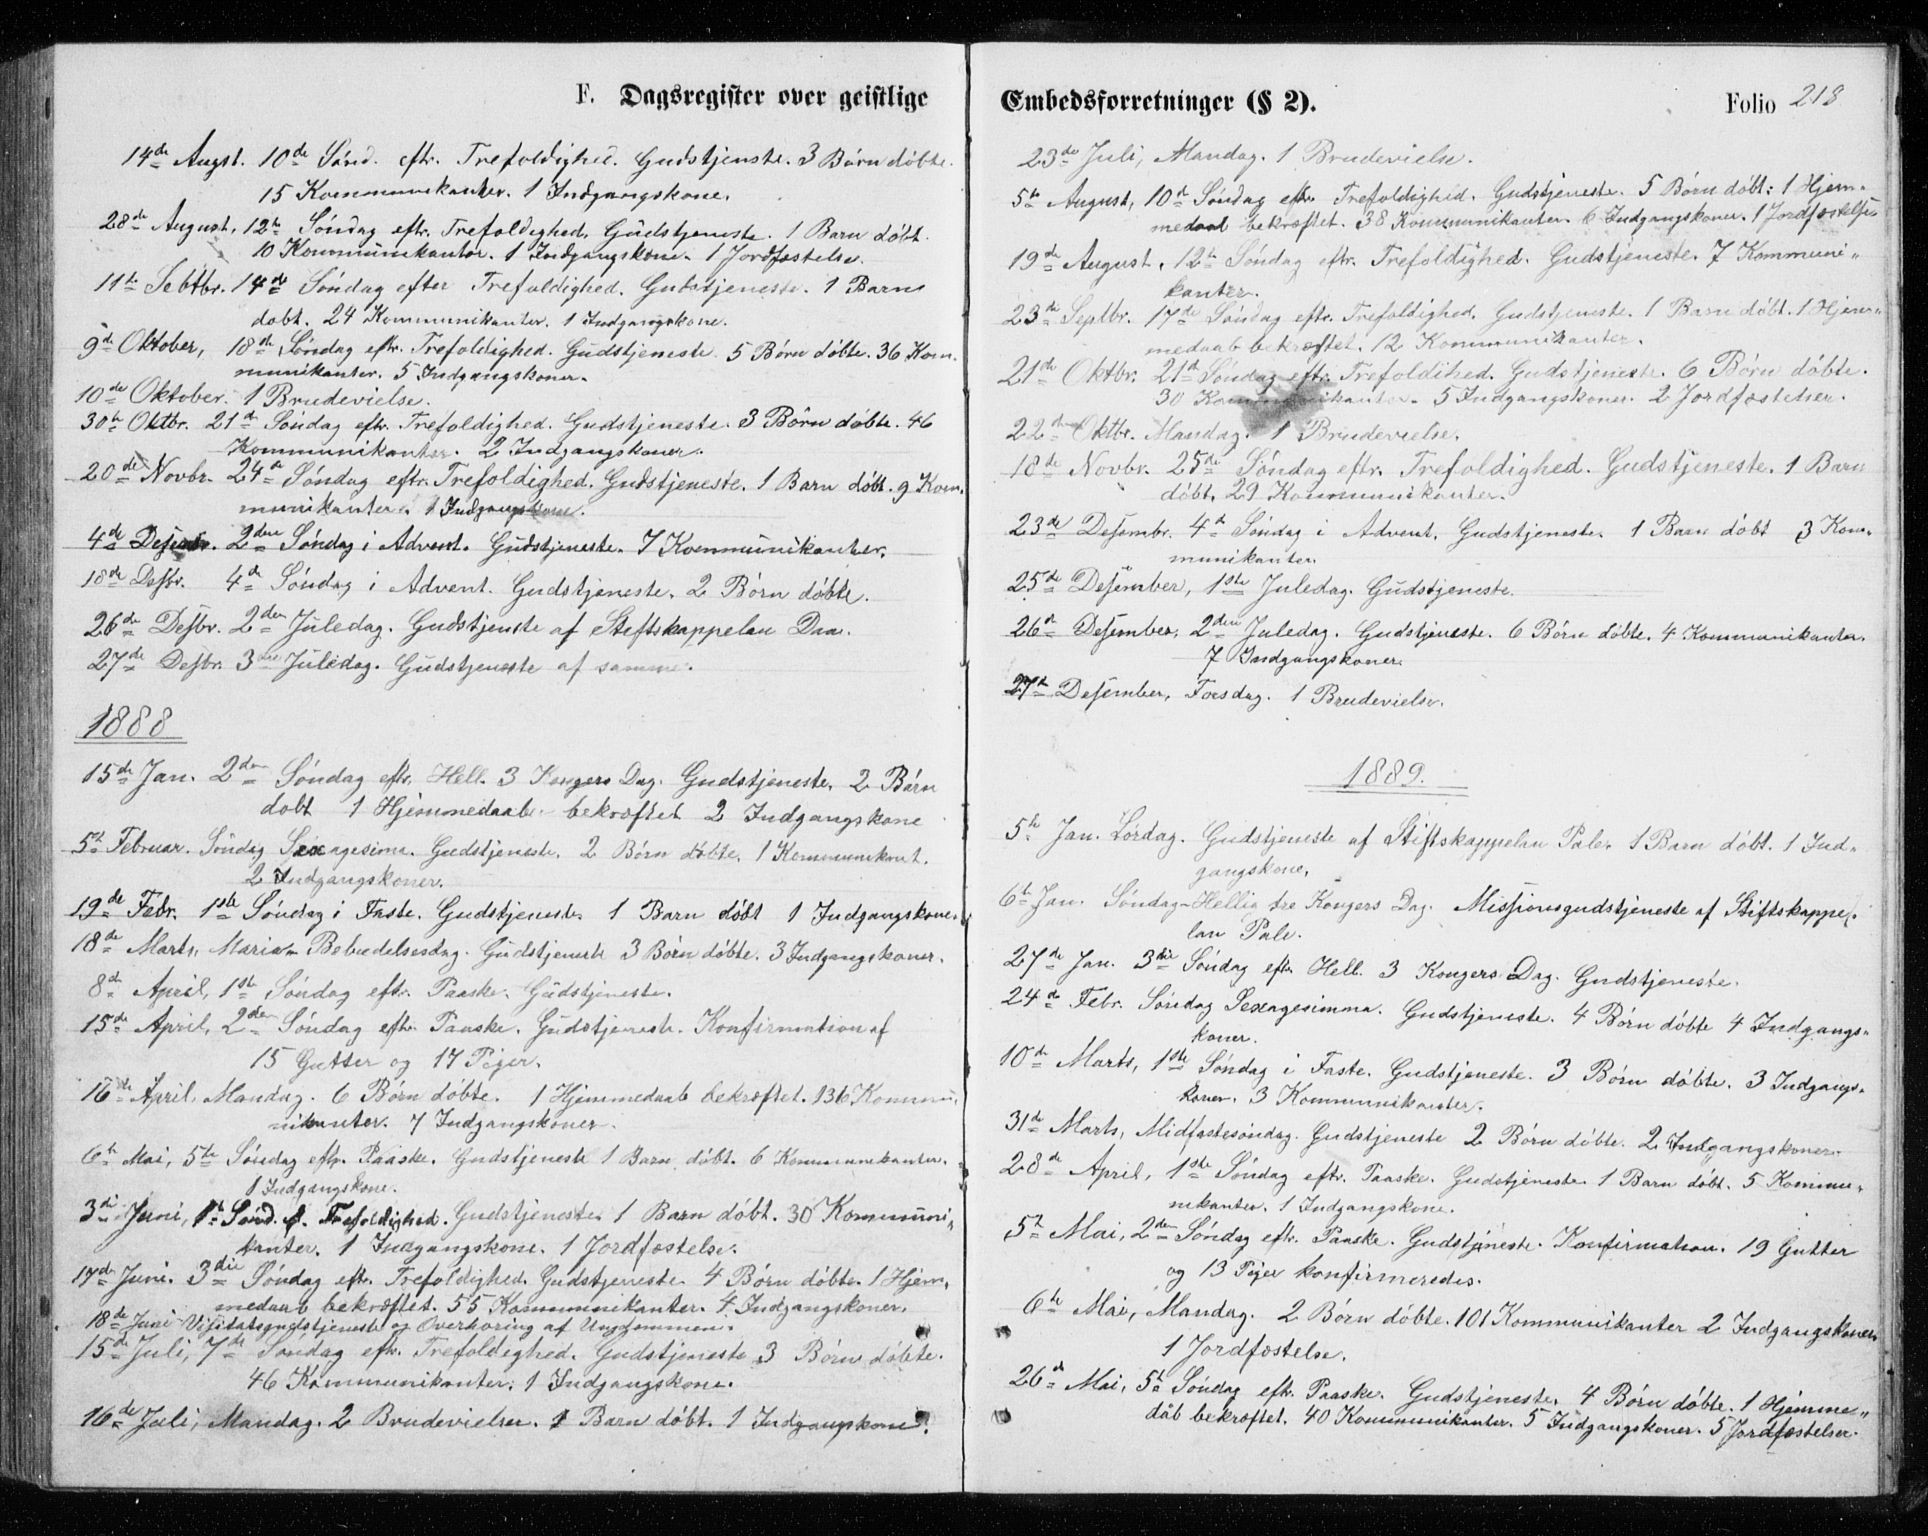 F. Dagsregister over geistlige
14de Augst. 10de Sönd. eftr. Trefoldighed. Gudstjenste. 3 Börn döbte.
15 Kommunikanter. 1 Indgangskone.
28de August, 12te Söndag eftr. Trefoldighed. Gudstjeneste. 1 Barn döbt.
10 Kommunikantor. 1 Indgangskone. 1 Jordfæstelse.
11te Sebtbr. 14de Söndag efter Trefoldighed. Gudstjeneste. 1 Barn
dobt. 24 Kommunikanter. 1 Indgangskone.
9de Oktober, 18de Söndag eftr. Trefoldighed. Gudstjeneste. 5 Börn döbte. 36 Kom-
munikanter. 5 Indgangskoner.
10de Oktober. 1 Brudevielse.
30te Oktbr. 21de Söndag eftr. Trefoldighed. Gudstjeneste. 3 Börn döbte. 46
Kommunikanter. 2 Indgangskoner.
20de Novbr. 24de Söndag eftr. Trefoldighed. Gudstjeneste. 1 Barn döbt. 9 Kom-
munikanter. 1 Indgangskone.
4de Desembr. 2den Söndag i Advent. Gudstjeneste. 7 Kommunikanter.
18de Desbr. 4de Söndag i Advent. Gudstjeneste. 2 Börn döbte.
26de Desbr. 2den Juledag. Gudstjenste af Steftskappelan Daa.
27de Desbr. 3die Juledag. Gudstjeneste af samme.
1888
15de Jan. 2den Söndag eftr. Hell. 3 Kongers Dag. Gudstjeneste. 2 Börn
dobt 1 Hjemmedaab bekræftet 2 Indgangskone
5te Februar. Söndag Sexagesima. Gudstjeneste. 2 Börn döbte. 1 Kommunikant.
2 Indgangskoner.
19de Febr. 1ste Söndag i Faste. Gudstjeneste. 1 Barn döbt 1 Indgangskone.
18de Marts, Mariæ Bebudelsesdag. Gudstjeneste 3 Börn döbte. 3 Indgangskoner.
8de April, 1ste Söndag eftr. Paaske. Gudstjeneste.
15de April, 2den Söndag eftr. Paaske. Gudstjeneste. Konfirmation af
15 Gutter og 17 Piger.
16de April, Mandag. 6 Börn döbte. 1 Hjemmedaab bekræftet. 136 Kommu-
nikanter. 7 Indgangskoner.
6te Mai, 5te Söndag eftr. Paaske. Gudstjeneste 1 Barn döbt. 6 Kommunikanter.
1 Indgangskone.
3die Juni, 1ste Sönd. e. Trefoldighed. Gudstjeneste. 1 Barn döbt. 30 Kommuni-
kanter. 1 Indgangskone. 1 Jordfæstelse.
17de Juni. 3die Söndag eftr. Trefoldighed. Gudstjeneste 4 Börn döbte. 1 Hjem-
medaab bekræftet. 55 Kommunikanter. 4 Indgangskoner.
18de Juni Visitatsgudstjeneste og Overhöring af Ungdommen.
15de Juli, 7de Söndag eftr. Trefoldighed. Gudstjeneste 3 Börn döbte.
46 Kommunikanter. 1 Indgangskone.
16de Juli, Mandag. 2 Brudevielser. 1 Barn döbt. 1 Indgangskone.
Embedsforretninger (§ 2).
Folio 218
23de Juli, Mandag. 1 Brudevielse.
5te August, 10de Söndag eftr. Trefoldighed. Gudstjeneste. 5 Börn döbt: 1 Hjem-
medaab bekræftet. 38 Kommunikanter. 6 Indgangskoner. 1 Jordfæstelse
19de August, 12te Söndag eftr. Trefoldighed. Gudstjeneste. 7 Kommuni-
kanter.
23de Septbr. 17de Söndag eftr. Trefoldighed. Gudstjeneste. 1 Barn döbt. 1 Hjem-
medaab bekræftet. 12 Kommunikanter.
21de Oktbr. 21de Söndag eftr. Trefoldihed. Gudstjeneste. 6 Börn döbte.
30 Kommunikanter. 5 Indgangskoner. 2 Jordfæstelser.
22de Oktbr. Mandag. 1 Brudevielse.
18de Novbr. 25de Söndag eftr. Trefoldighed. Gudstjeneste. 1 Barn
döbt. 29 Kommunikanter.
23de Desembr. 4de Söndag i Advent. Gudstjeneste. 1 Barn döbt 3 Kom-
munikanter.
25de Desember, 1ste Juledag. Gudstjeneste.
26de Desember, 2den Juledag. Gudstjeneste. 6 Börn döbte. 4 Kommunikanter.
7 Indgangskoner.
27de Desember, Torsdag. 1 Brudevielse.
1889.
5te Jan. Lördag. Gudstjeneste af Stiftskappelan Pale. 1 Barn döbt. 1 Ind-
gangskone.
6te Jan. Söndag Hellig tre Kongers Dag. Missionsgudstjeneste af Stiftskappe-
lan Pale.
27de Jan. 3die Söndag eftr. Hell. 3 Kongers Dag. Gudstjeneste.
24de Febr. Söndag Sexagesimma. Gudstjeneste. 4 Börn döbte 4 Indgangs-
koner.
10de Marts, 1ste Söndag i Faste. Gudstjeneste. 3 Börn döbte. 3 Indgangs-
koner. 3 Kommunikanter.
31de Marts, Midfastesöndag. Gudstjeneste 2 Börn döbte. 2 Indgangskoner.
28de April, 1ste Söndag eftr. Paaske. Gudstjeneste. 1 Barn döbt. 5 Kommu-
nikanter. 1 Indgangskone.
5te Mai, 2den Söndag eftr. Paaske. Gudstjeneste. Konfirmation. 19 Gutter
og 13 Piger konfirmeredes.
6te Mai, Mandag. 2 Börn döbte. 101 Kommunikanter 2 Indgangskoner
1 Jordfæstelse.
26de Mai, 5te Söndag eftr. Paaske. Gudstjeneste. 4 Börn döbte. 1 Hjemme-
dåb bekræftet. 40 Kommunikanter. 5 Indgangskoner. 5 Jordfæstelser.